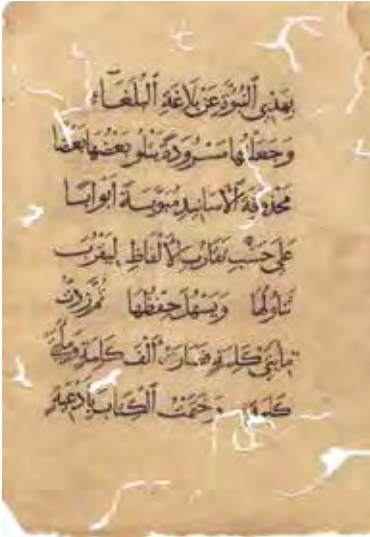 بهدي النبوة عن بلاغة البلغاء
وجعلتها مسرودة يتلو بعضها بعضا
محذوفة الأسانيد مبوبة أبوابا
على حسب تقارب الألفاظ ليقرب
تناولها ويسهل حفظها ثم زدت
مايتي كلمة فصارت ألف كلمة ومايتي
كلمة وختمت الكتاب بأدعية